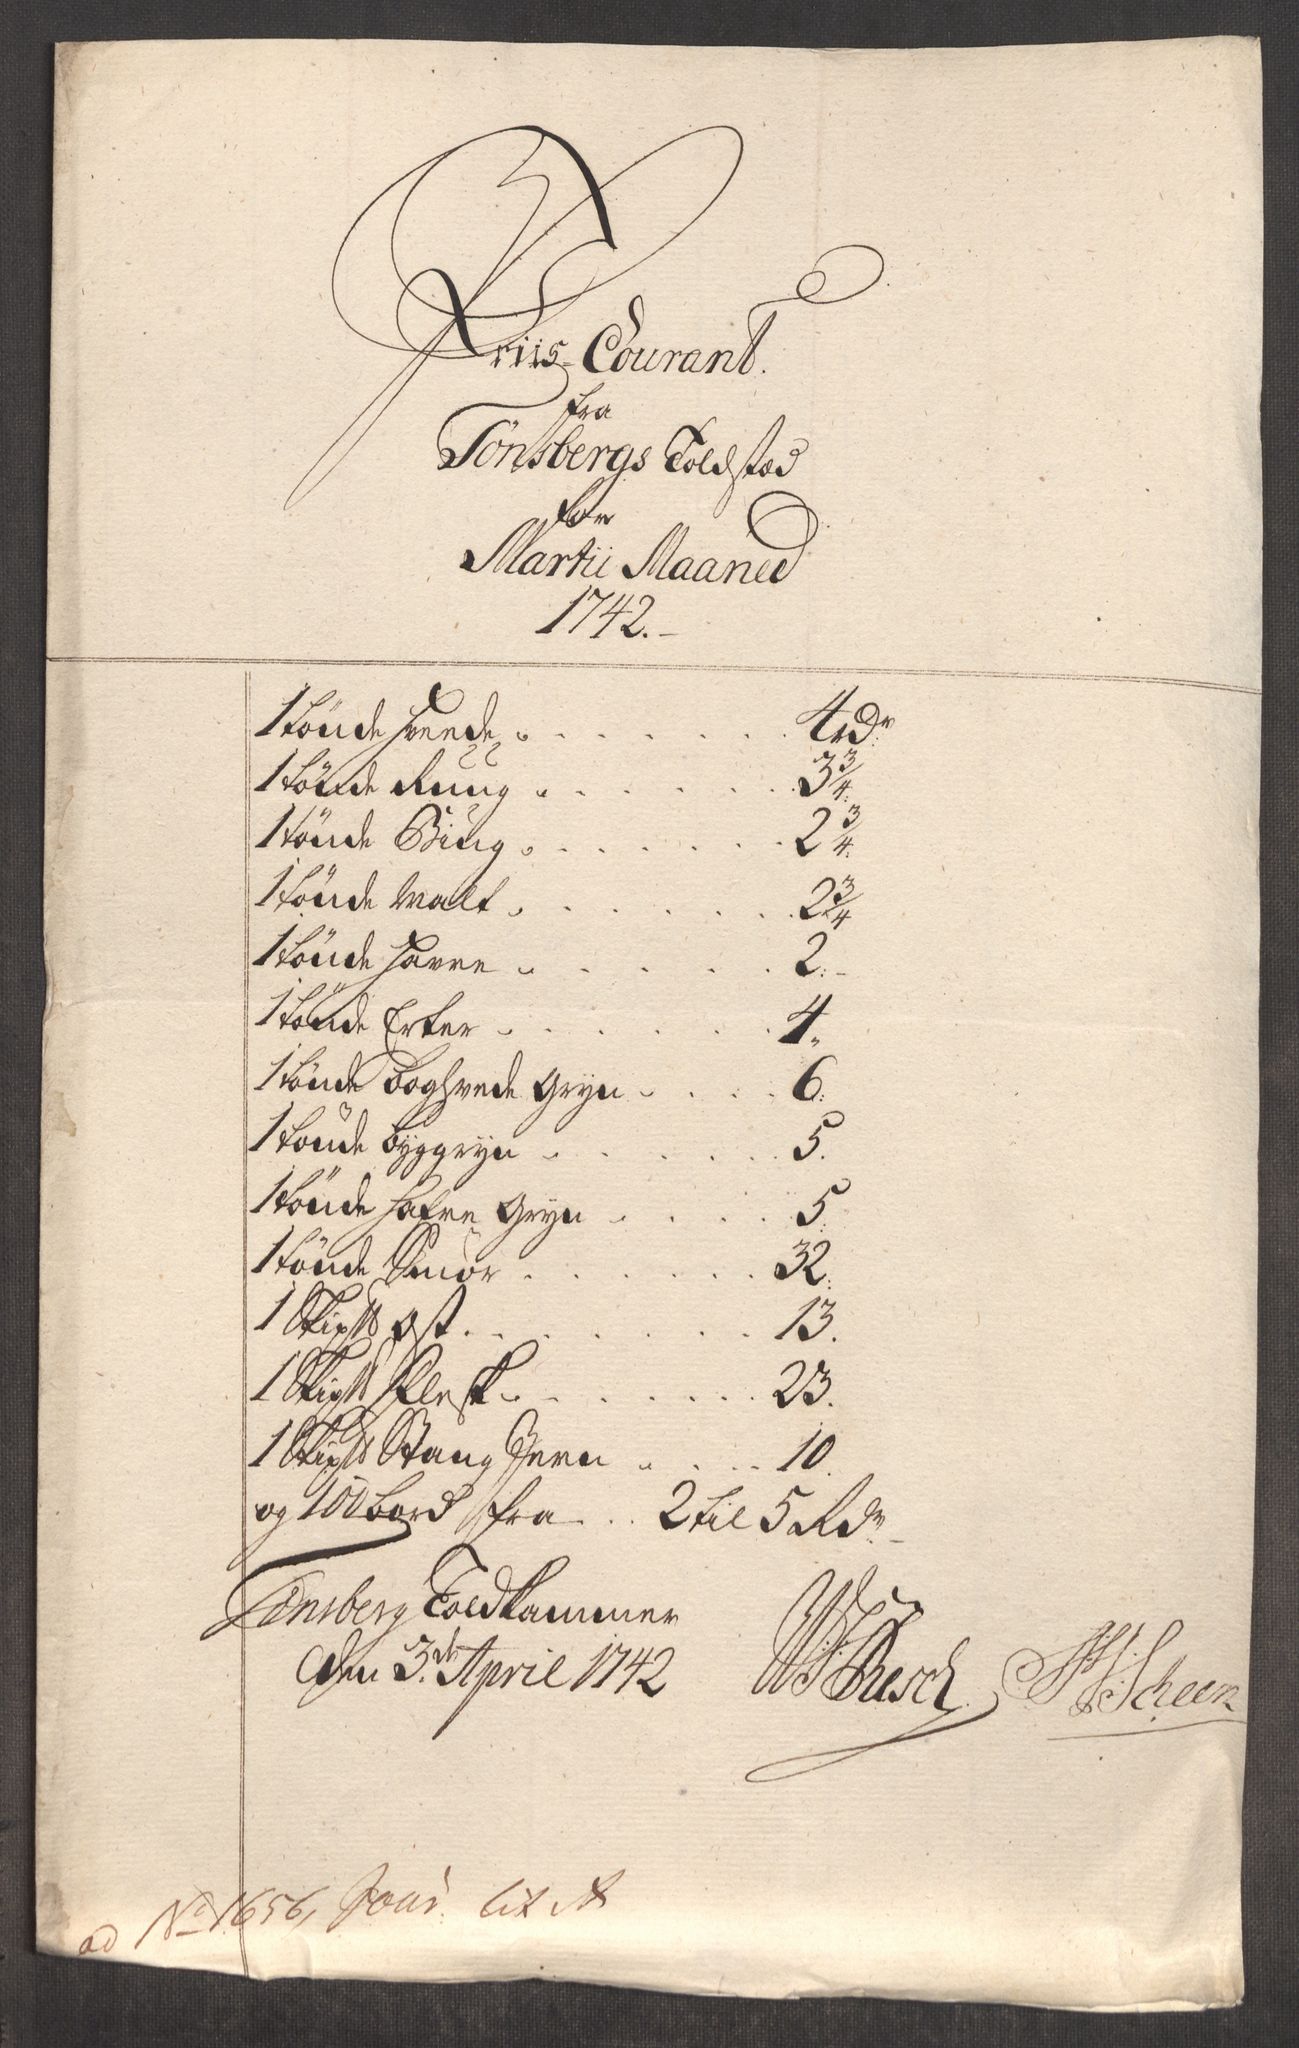 Priis-Courant.
fra
Tönsbergs Toldstæd
for
Martii Maaned
1742.
1 tönde Hvede . . . . . . . 4 rdr
1 tönde Rüug . . . . . . 3 3/4.
1 tönde Biug . . . . . . 2 3/4.
1 tönde Malt . . . . . . 2 3/4
1 tönde Havre . . . . . 2:-
1 tönde Erter . . . . . . 4.
1 tönde boghvede Gryn . . . . 6.
1 tönde byggryn . . . . . . 5.
1 tönde Hafre Gryn . . . . 5.
1 tönde Smör . . . . . . 32.
1 Skip℔ Ost . . . . . . . 13.
1 Skip℔ Flesk . . . . . . . 23.
1 Skip℔ Stang Jern . . . . 10.
og 100 bord fra . . 2 til 5 Rdr
Tönsberg Toldkammer
den 3de April 1742 Resch Scheen
ad No 1656, Jour. Lit A